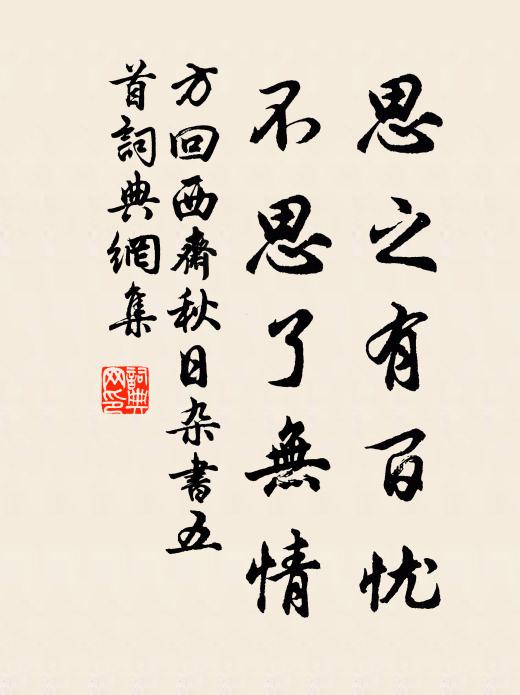 思之有百忧
不思了無情
方回西齋秋日杂書五
首詞典網集
詞典
网印